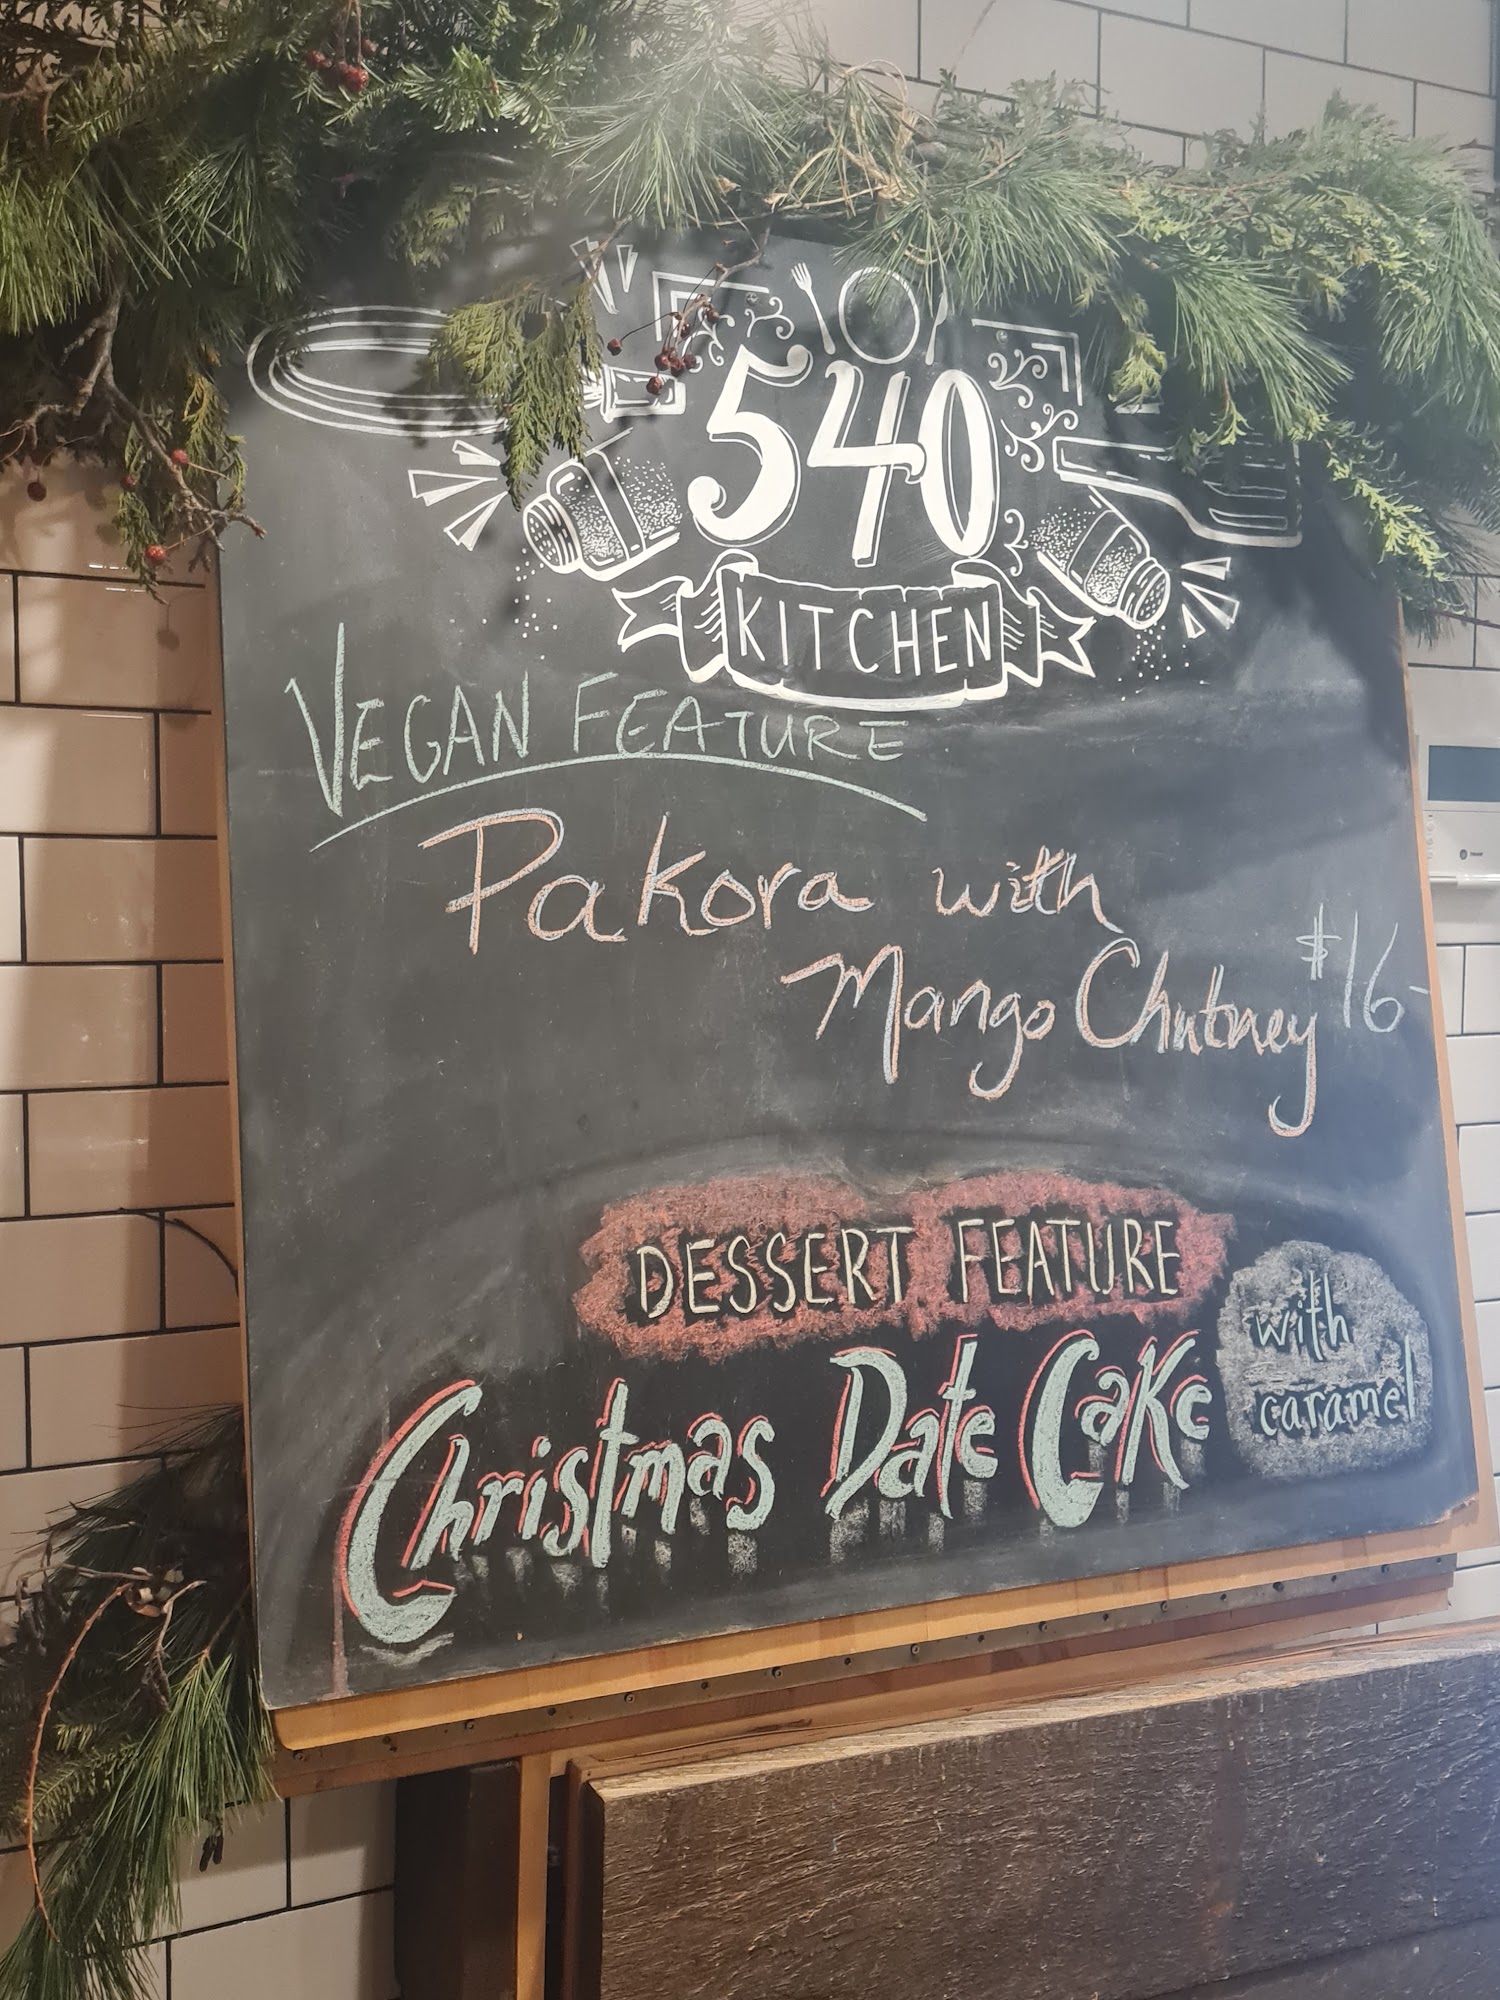 540
KITCHEN
VEGAN FEATURE
Pakora with
Mango Chutney $16-
DESSERT FEATURE
Christmas Date Cake
with
caramel